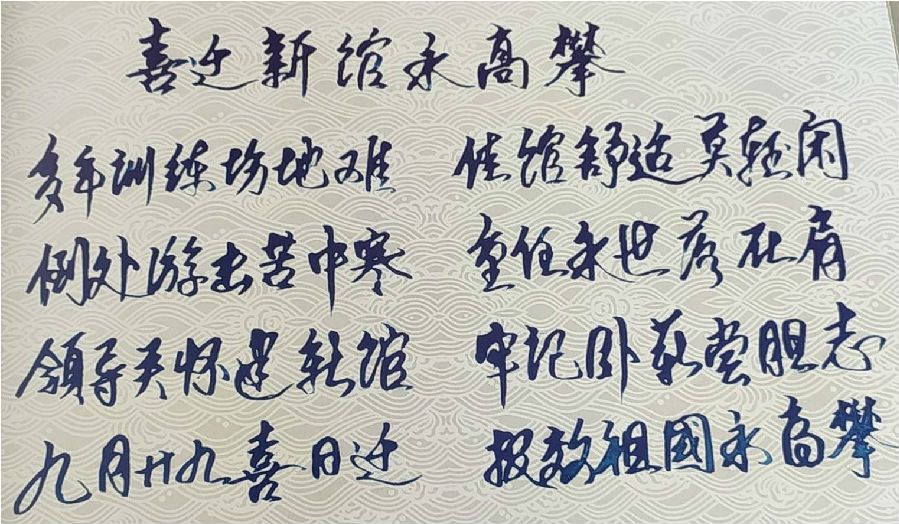 喜迁新馆永高攀
多年训练场地难
倒处游击苦中寒
领导关怀建新馆
九月廿九喜日迁
佳馆舒适莫轻闲
重任永世落在肩
牢记卧薪尝胆志
报效祖國永高攀